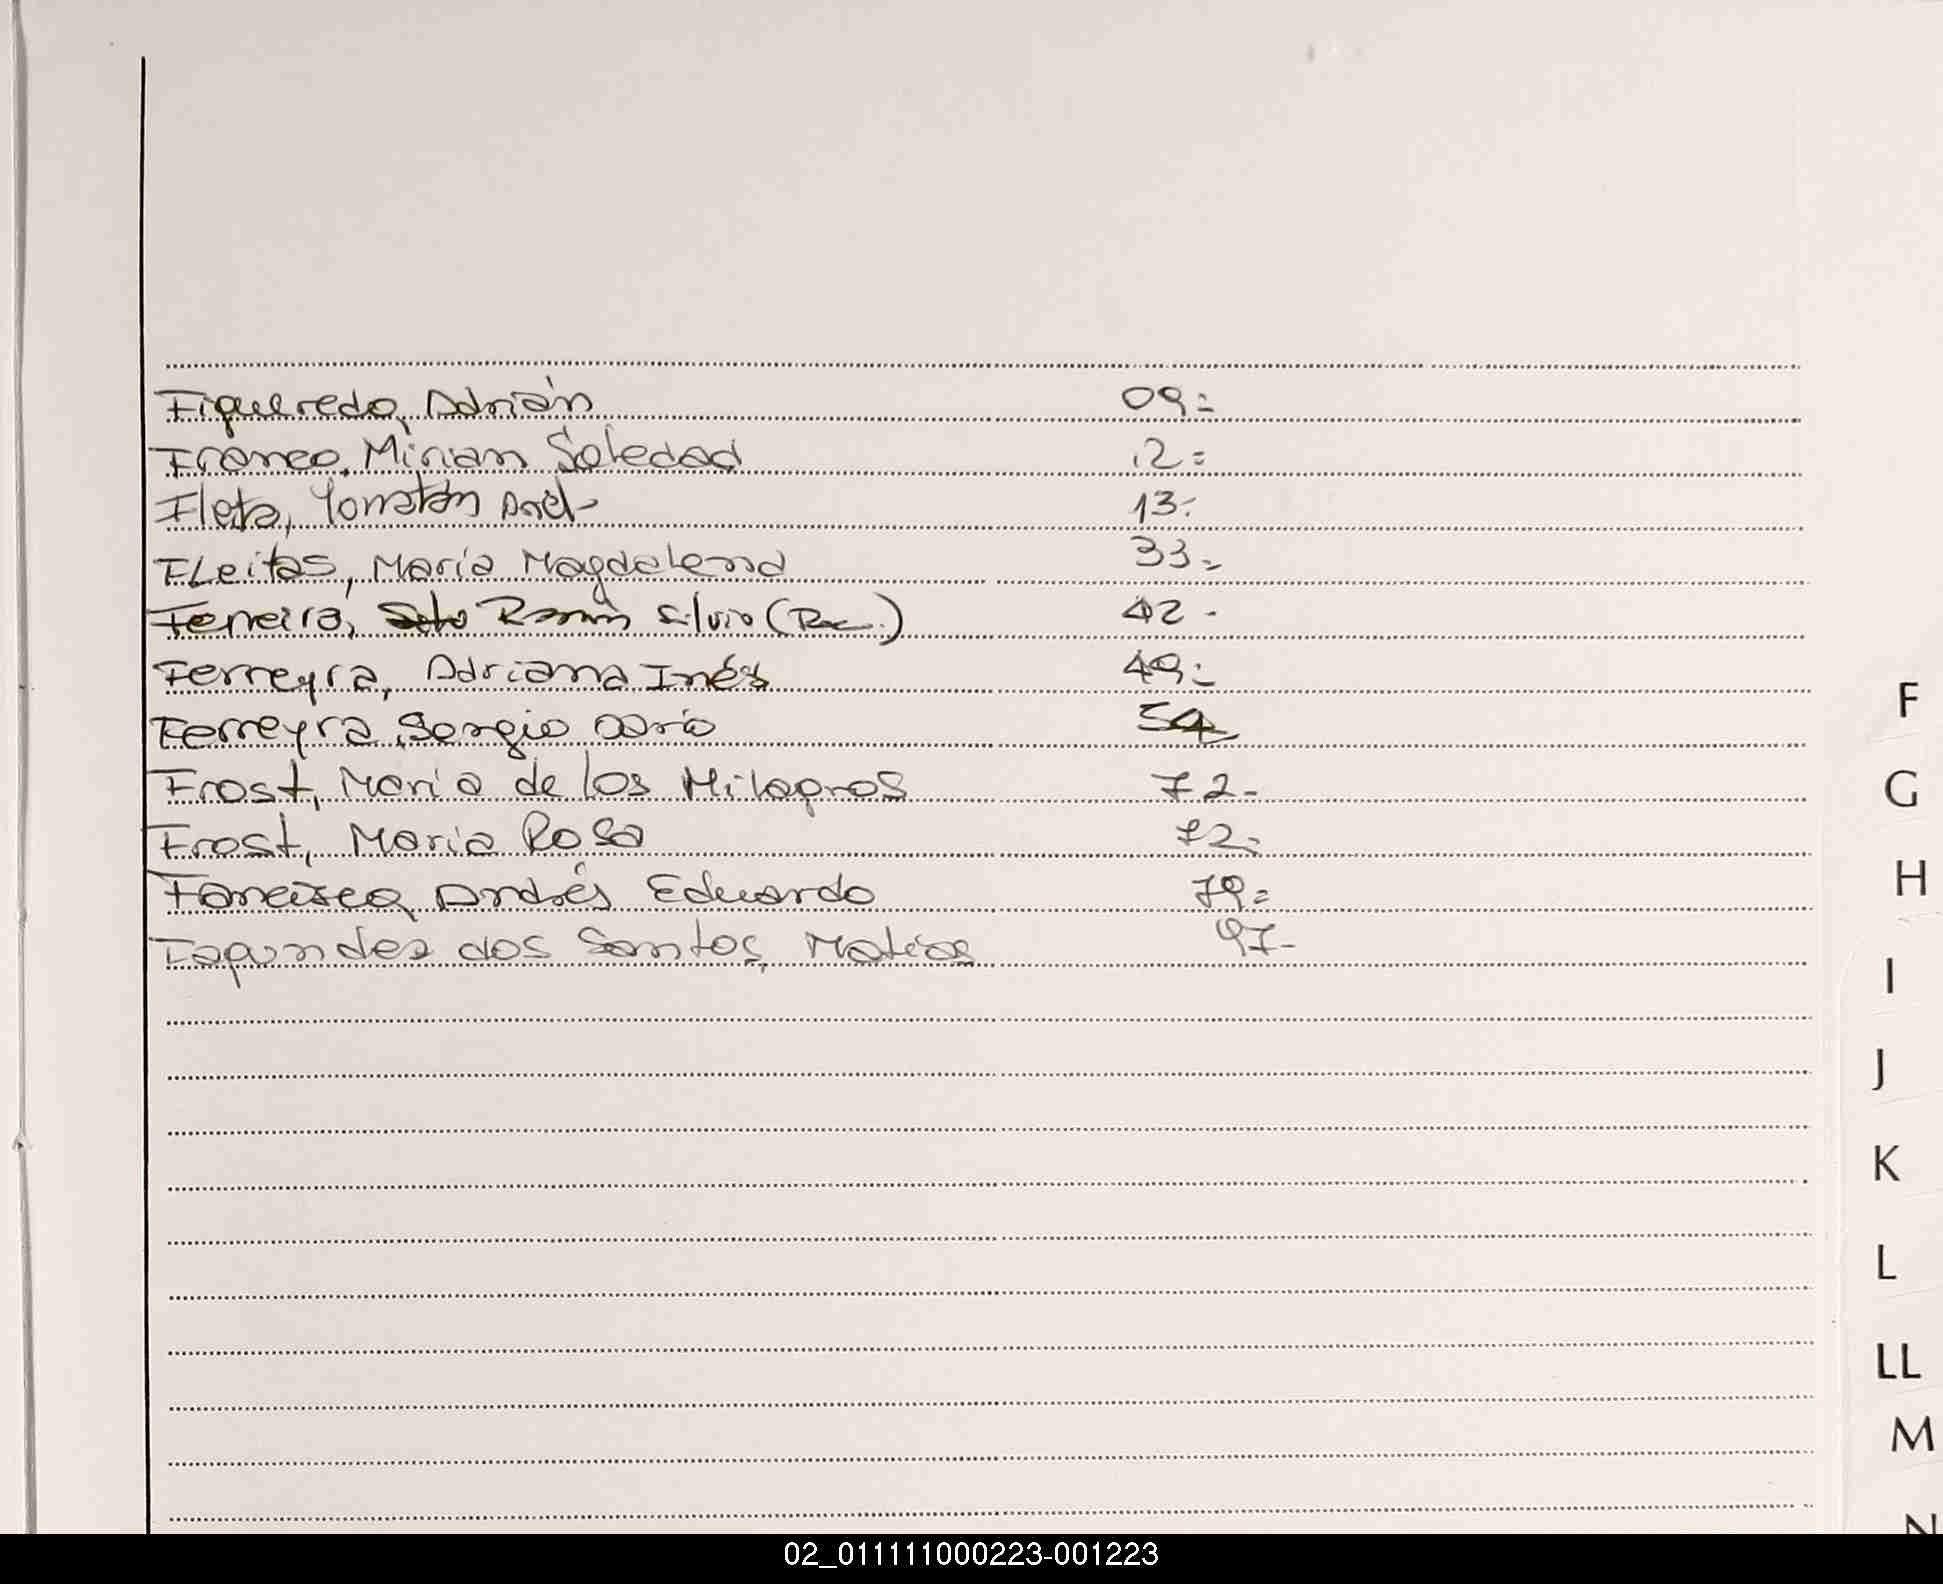 Figueredo, Adrián 09=
Franco, Mirian Soledad 12=
Fleta, Yonatán Ariel 13=
FLeitas, María Magdalena 33=
Ferreira, Ramón Silvio (Rec.) 42-
Ferreyra, Adriana Inés 49=
Ferreyra, Sergio Dario 54
Frost, Maria de los Milagros 72-
Frost, Maria Rosa 72=
Andrés Eduardo 79=
Fagundez dos Santos, Matias 97-
F
G
H
I
J
K
L
LL
M
N
02_011111000223-001223